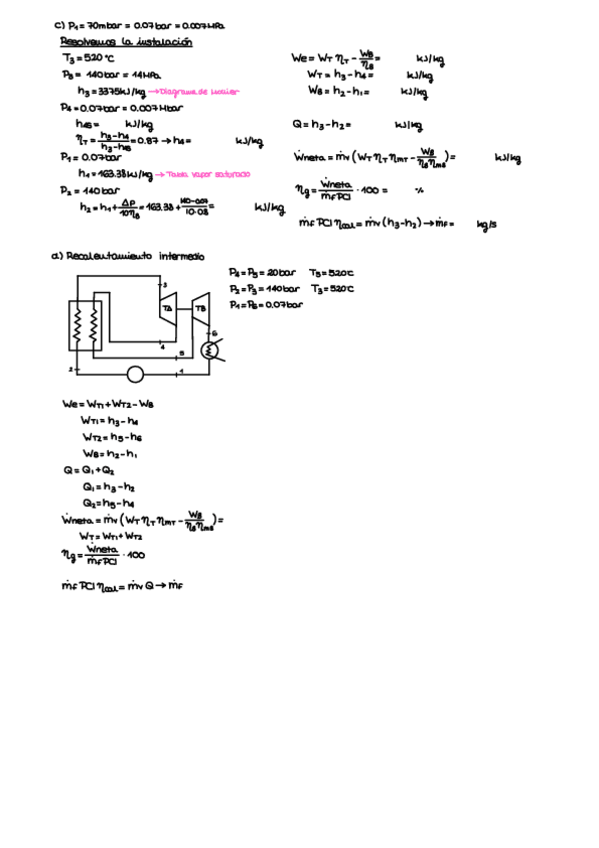 c) P1 = 70mbar = 0.07bar = 0.007MPa
Resolvemos la instalación
T3 = 520 °C
P3 = 140bar = 14MPa
h3 = 3375kJ/kg → Diagrama de Mollier
P4 = 0.07bar = 0.007Mbar
h4s = kJ/kg
ηT = (h3-h4)/(h3-h4s) = 0.87 → h4 = kJ/kg
P1 = 0.07bar
h1 = 163.38kJ/kg → Tabla vapor saturado
P2 = 140bar
h2 = h1 + ΔP/(10ηB) = 163.38 + (140-0.07)/(10·0.8) = kJ/kg
We = WT ηT - WB/ηB = kJ/kg
WT = h3 - h4 = kJ/kg
WB = h2 - h1 = kJ/kg
Q = h3 - h2 = kJ/kg
Ẇneta = ṁv (WT ηT ηmT - WB/(ηB ηmB)) = kJ/kg
ηg = Ẇneta/(ṁF PCI) · 100 = %
ṁF PCI ηcal = ṁv (h3 - h2) → ṁF = kg/s
d) Recalentamiento intermedio
P4 = P5 = 20bar T5 = 520°C
P2 = P3 = 140bar T3 = 520°C
P1 = P6 = 0.07bar
3
TA
TB
6
4
5
2
1
We = WT1 + WT2 - WB
WT1 = h3 - h4
WT2 = h5 - h6
WB = h2 - h1
Q = Q1 + Q2
Q1 = h3 - h2
Q2 = h5 - h4
Ẇneta = ṁv (WT ηT ηmT - WB/(ηB ηmB)) =
WT = WT1 + WT2
ηg = Ẇneta/(ṁF PCI) · 100
ṁF PCI ηcal = ṁv Q → ṁF